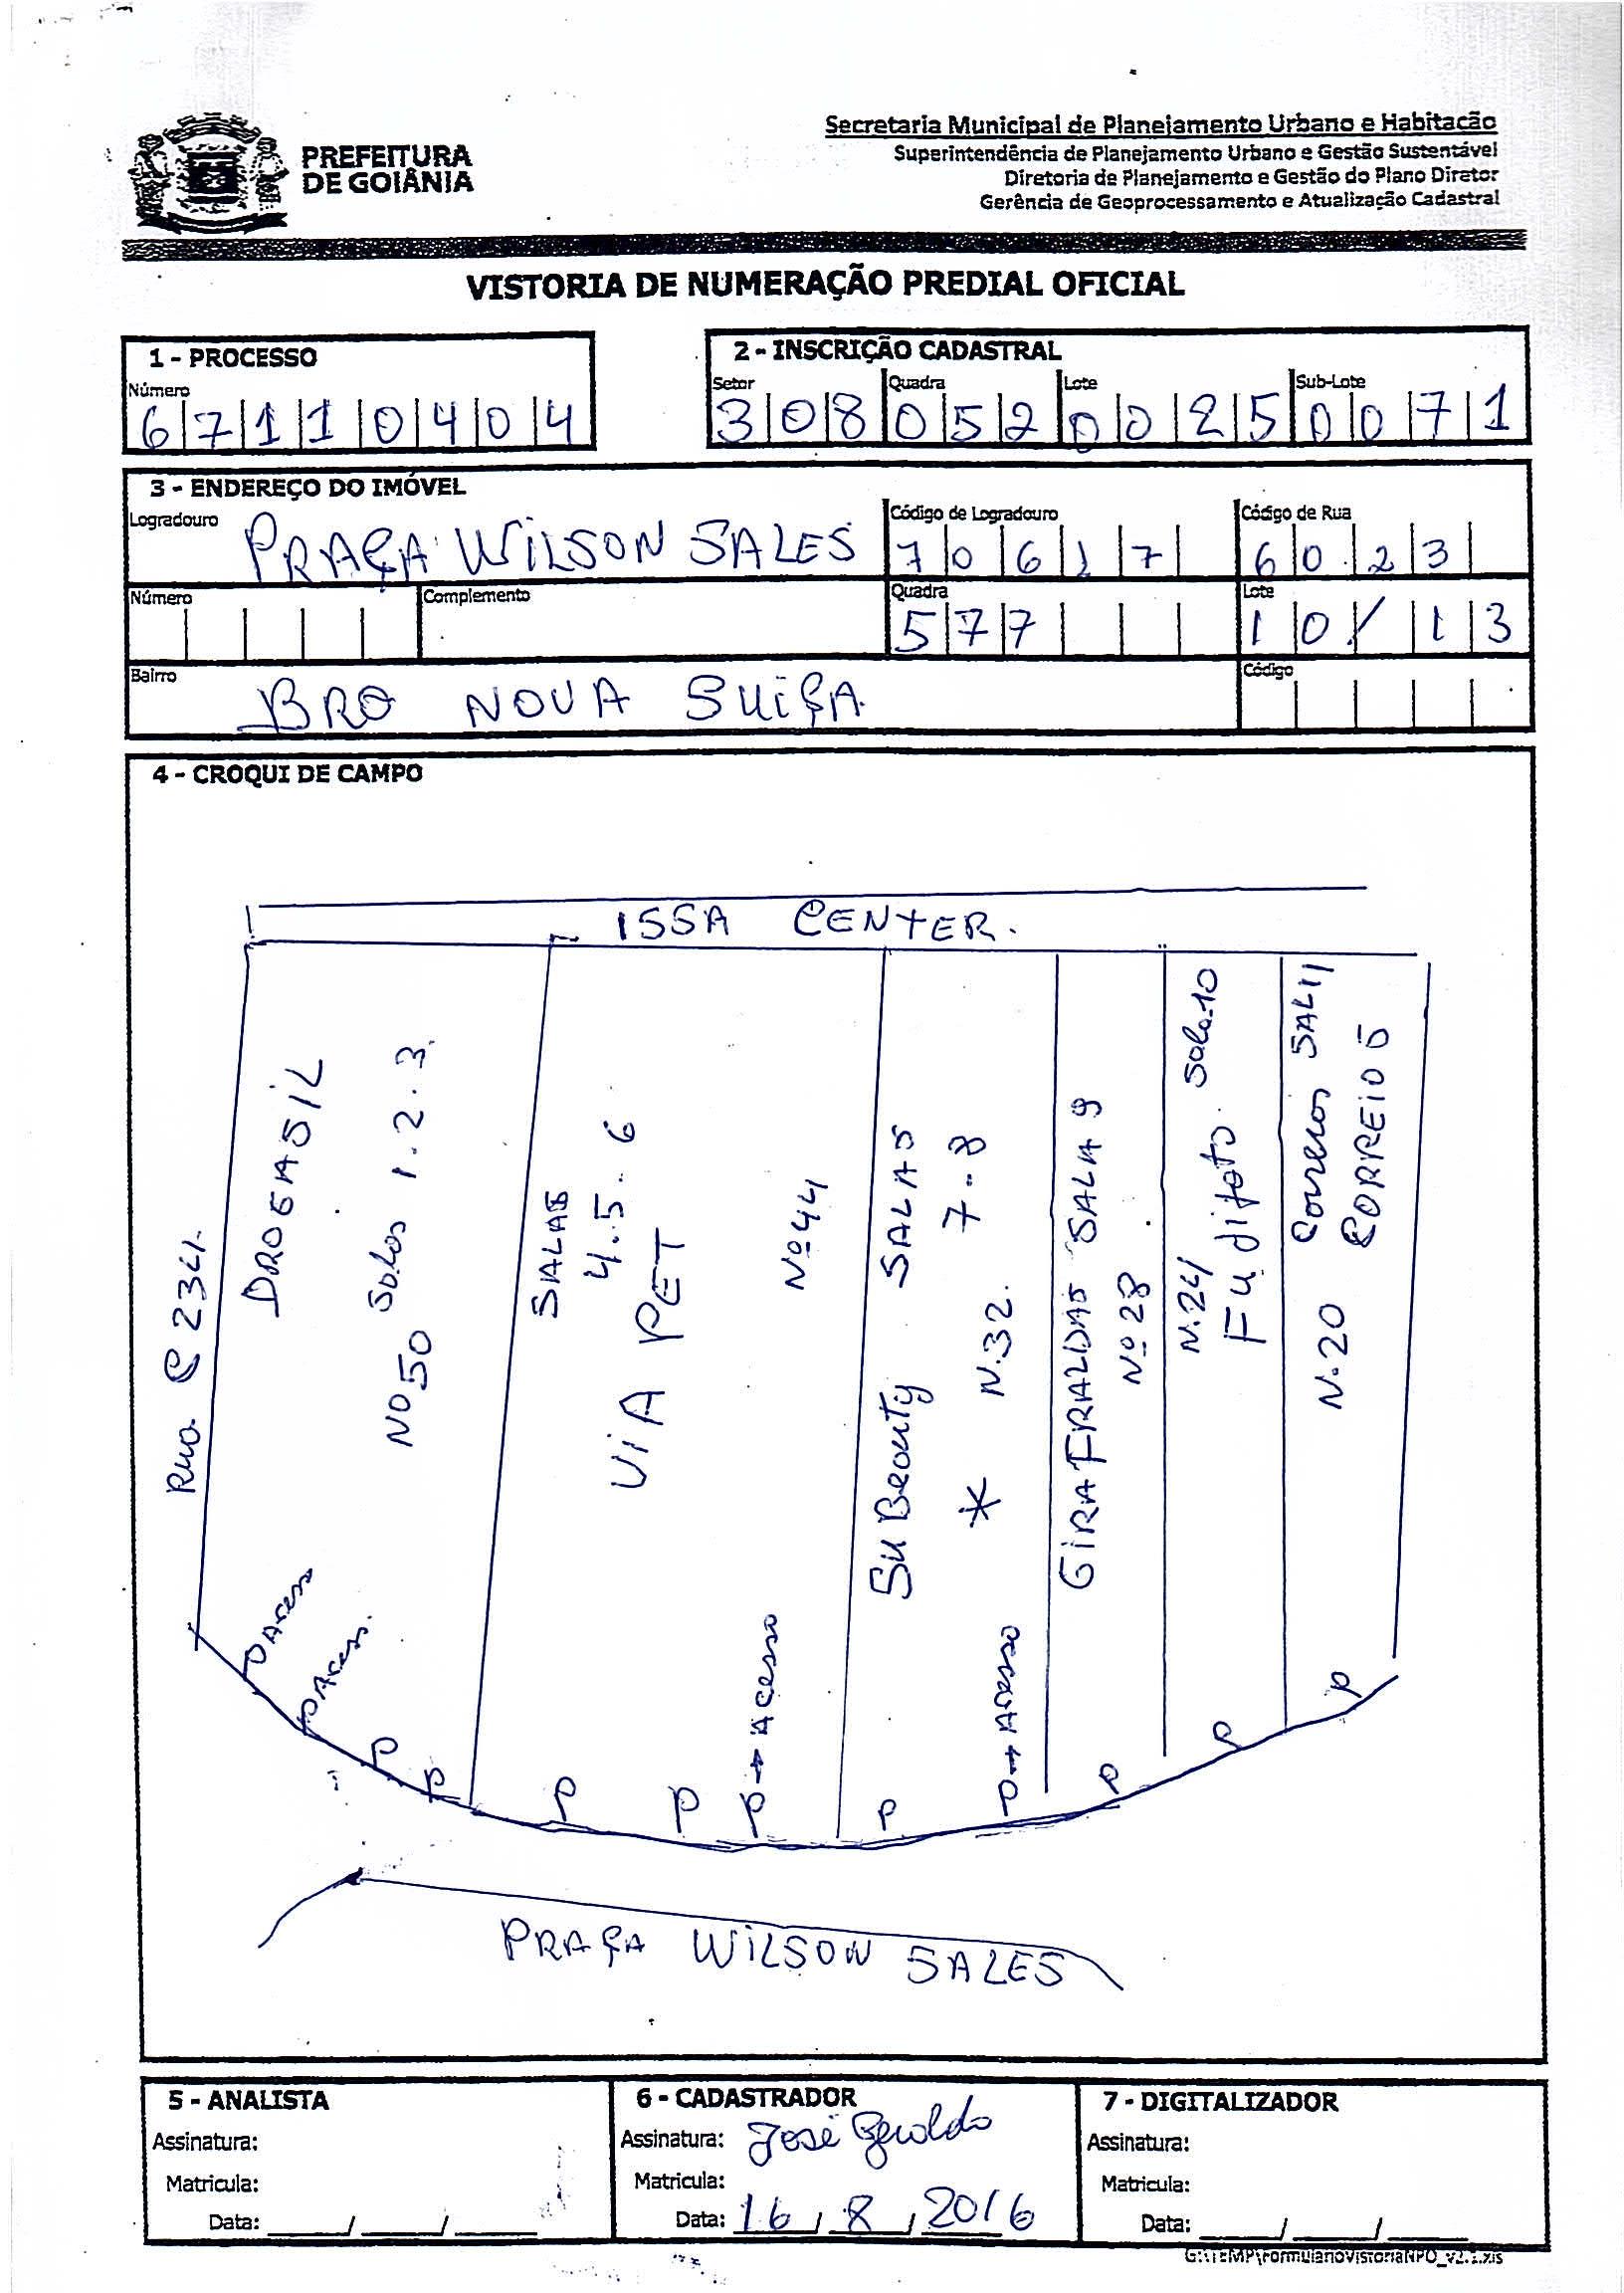 PREFEITURA
DE GOIÂNIA
Secretaria Municipal de Planejamento Urbano e Habitação
Superintendência de Planejamento Urbano e Gestão Sustentável
Diretoria de Planejamento e Gestão do Plano Diretor
Gerência de Geoprocessamento e Atualização Cadastral
VISTORIA DE NUMERAÇÃO PREDIAL OFICIAL
1 - PROCESSO
Número
67110404
2 - INSCRIÇÃO CADASTRAL
Setor Quadra Lote Sub-Lote
308 052 0025 0071
3 - ENDEREÇO DO IMÓVEL
Logradouro PRAÇA WILSON SALES
Código de Logradouro
70617
Código de Rua
6023
Número
Complemento
Quadra
577
Lote
10/13
Bairro BRO NOVA SUIÇA
Código
4 - CROQUI DE CAMPO
ISSA CENTER.
Rua C 234.
DROGASIL
Salas 1.2.3.
Nº 50
SALAS
4.5.6
VIA PET
Nº 44
SU Beauty SALAS
* N.32. 7-8
GIRAFRALDAS SALA 9
Nº 28
N.24 Sala 10
Correios SAL 11
N.20 CORREIOS
P Acesso
P Acess.
P
P
P
P
P → Acesso
P
P → Acesso
P
P
P
PRAÇA WILSON SALES
5 - ANALISTA
Assinatura:
Matricula:
Data: ___/___/___
6 - CADASTRADOR
Assinatura: José Geraldo
Matricula:
Data: 16/8/2016
7 - DIGITALIZADOR
Assinatura:
Matricula:
Data: ___/___/___
G:\TEMP\FormularioVistoriaNPO_v2.1.xls